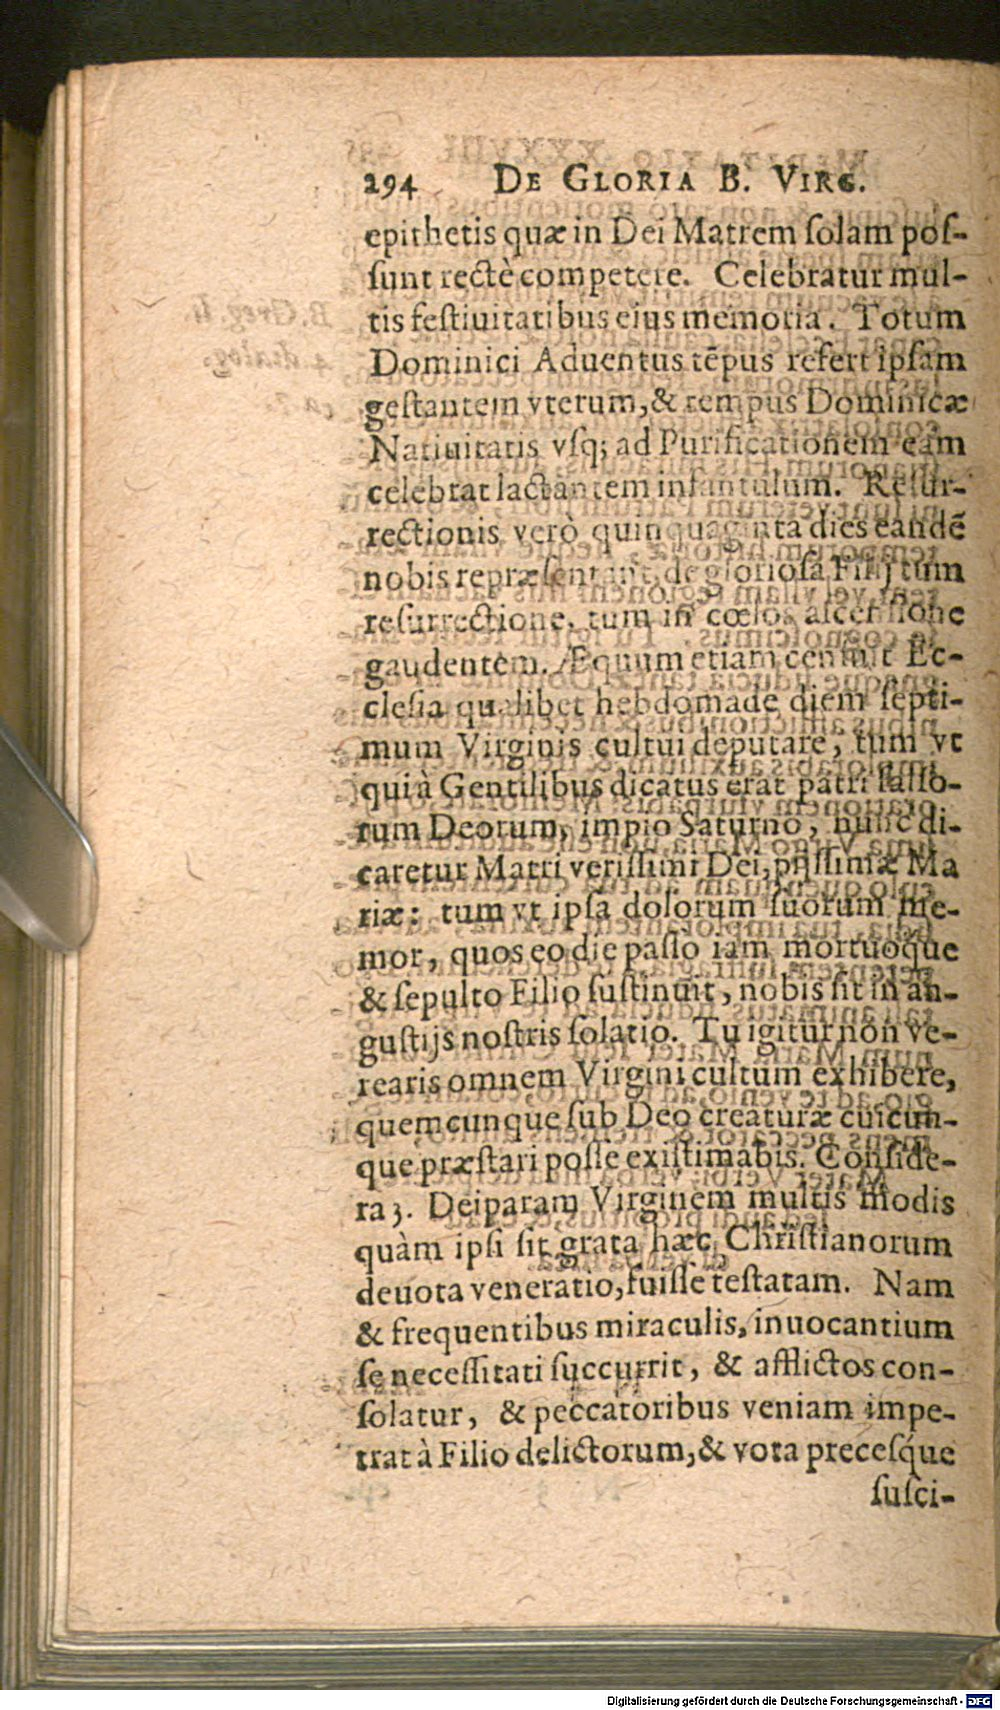 294 DE GLORIA B. VIRG.
epithetis quæ in Dei Matrem ſolam poſ-
ſunt rectè competere. Celebratur mul-
tis feſtiuitatibus eius memoria. Totum
Dominici Aduentus tẽpus refert ipſam
geſtantem vterum, & tempus Dominicæ
Natiuitatis vſq; ad Purificationem eam
celebrat lactantem infantulum. Reſur-
rectionis verò quinquaginta dies eandẽ
nobis repræſentant, de glorioſa Filij tum
reſurrectione, tum in cœlos aſcenſione
gaudentem. Æquum etiam cenſuit Ec-
cleſia qualibet hebdomade diem ſepti-
mum Virginis cultui deputare, tum vt
qui à Gentilibus dicatus erat patri falſo-
rum Deorum, impio Saturno, nunc di-
caretur Matri veriſſimi Dei, pijſſimæ Ma
riæ: tum vt ipſa dolorum ſuorum me-
mor, quos eo die paſſo iam mortuoque
& ſepulto Filio ſuſtinuit, nobis ſit in an-
guſtijs noſtris ſolatio. Tu igitur non ve-
rearis omnem Virgini cultum exhibere,
quemcunque ſub Deo creaturæ cuicum-
que præſtari poſſe exiſtimabis. Conſide-
ra 3. Deiparam Virginem multis modis
quàm ipſi ſit grata hæc Chriſtianorum
deuota veneratio, fuiſſe teſtatam. Nam
& frequentibus miraculis, inuocantium
ſe neceſſitati ſuccurrit, & afflictos con-
ſolatur, & peccatoribus veniam impe-
trat à Filio delictorum, & vota preceſq́ue
ſuſci-
Digitalisierung gefördert durch die Deutsche Forschungsgemeinschaft - DFG